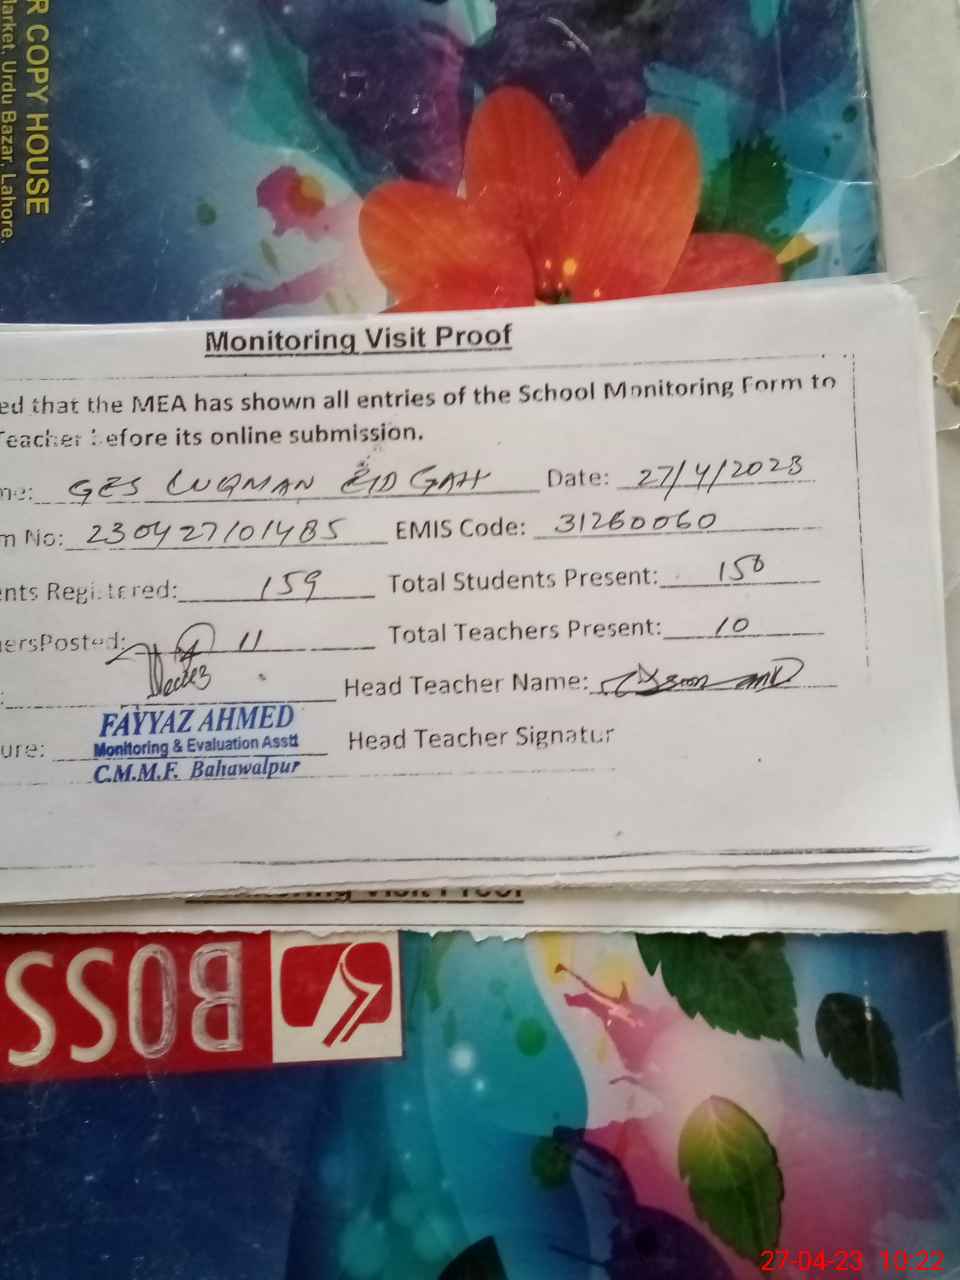 R COPY HOUSE
Market, Urdu Bazar, Lahore.
Monitoring Visit Proof
ed that the MEA has shown all entries of the School Monitoring Form to
Teacher before its online submission.
me: GES LUQMAN EID GAH Date: 27/4/2023
m No: 230427101485 EMIS Code: 31260060
ents Registered: 159 Total Students Present: 150
hersPosted: 11 Total Teachers Present: 10
Head Teacher Name:
FAYYAZ AHMED
Monitoring & Evaluation Asstt
C.M.M.F. Bahawalpur
ure: Head Teacher Signatur
Monitoring Visit Proof
BOSS
27-04-23 10:22